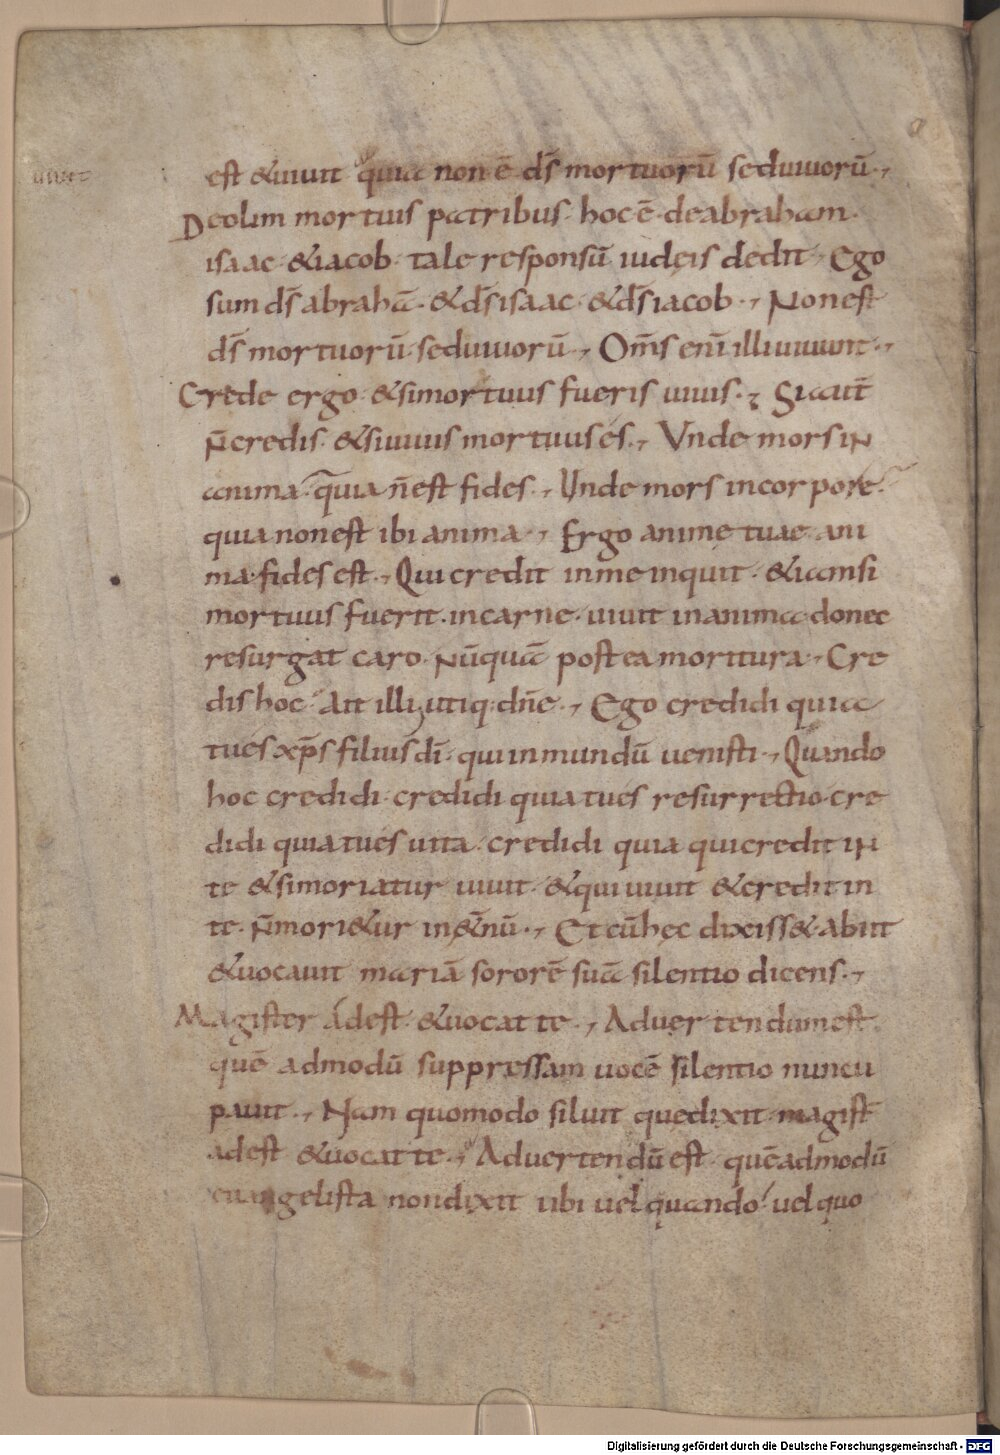 uiuet
est &uiuit quia non ē d̄s mortuorū seduiuorū·,
Deolim mortuis patribus· hoc ē· deabraham·
isaac· &iacob· tale responsū iudęis dedit· Ego
sum d̄s abrahā· &d̄s isaac· &d̄s iacob·, Nonest
d̄s mortuorū· seduiuorū·, Om̄s enī illi uiuunt·,
Crede ergo· &simortuus fueris uiuis·, Si aut̄
n̄credis· &siuiuis mortuus es·, Vnde mors in
anima· quia n̄est fides·, Unde mors incorpore·
quia nonest ibi anima·, Ergo animę tuae ani
ma· fides est·, Qui credit inme inquit· &iamsi
mortuus fuerit· incarne· uiuit inanima donec
resurgat caro· nūquā postea moritura·, Cre
dis hoc· Ait illi, utiq; dn̄e·, Ego credidi quia
tues xp̄s filius dī· qui inmundū uenisti·, Quando
hoc credidi· credidi quia tues resurrectio· cre
didi quia tues uita· credidi quia quicredit in
te &simoriatur uiuit· &quiuiuit &credit in
te· n̄mori&ur in&̄nū·, Et cū hęc dixiss& abiit
&uocauit mariā sororē suā silentio dicens·,
Magister ádest &uocat te·, Aduertendum est
quē admodū suppressam uocē silentio nuncu
pauit·, Nam quomodo siluit quedixit magist̄
adest &uocat te·, Aduertendū est quēadmodū
euangelista nondixit ubi uel quando· uel quo
Digitalisierung gefördert durch die Deutsche Forschungsgemeinschaft - DFG